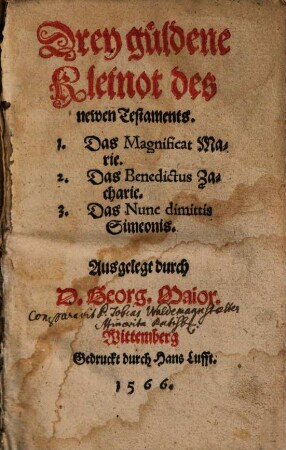 Drey güldene
Kleinot des
newen Testaments.
1. Das Magnificat Ma-
rie.
2. Das Benedictus Za-
charie.
3. Das Nunc dimittis
Simeonis.
Ausgelegt durch
D. Georg. Maior.
Comparavit P. Tobias
Minorita
Wittemberg
Gedruckt durch Hans Lufft.
1566.